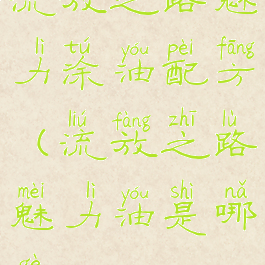 流放之路魅
lì tú yóu pèi fāng
力涂油配方
liú fàng zhī lù
（流放之路
mèi lì yóu shì nǎ
魅力油是哪
gè